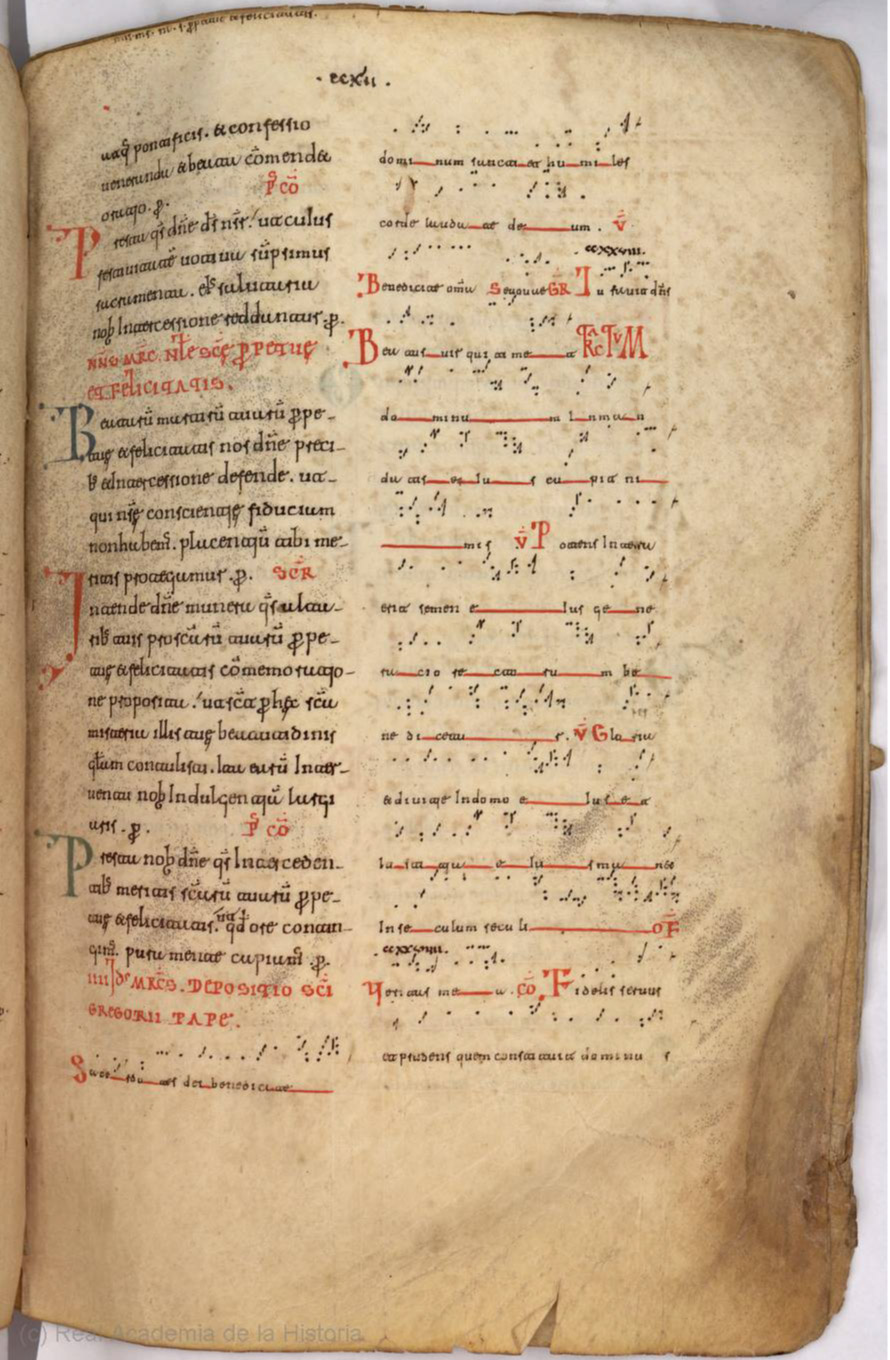 · ccxii ·
uaq; pontificis. & confessio
ueneranda & beata cõmendet
oratio. p.
P cõ
Presta q̃s dñe ds nr̃. ut cuius
festiuitate uotiua sũt primus
sacramenta. eius salutaria
nob intercessione reddantur. p.
NÑS MRC. NTLE SCE PERPETUE
ET FELICITATIS.
Beatarũ martirũ tuarũ ppe-
tue & felicitatis nos dñe preci-
b& intercessione defende. ut
qui nr̃e conscientie fiduciam
non habem. placentiũ tibi me-
ritis protegamur. p. SCR
Intende dñe munera q̃s alta-
rib tuis pro scarũ tuarũ ppe-
tue & felicitatis cõmemoratio-
ne proposita. ut sc̃a p hec sc̃a
misteria illis tue beatitudinis
gl̃am contulisti. ita earũ Inter-
uentu nob Indulgentiã largi
aris. p. P cõ
Presta nob dñe q̃s Interceden-
tib meritis sc̃arũ tuarũ ppe-
tue & felicitatis. ut qd ore contin-
gim. pura mente capiam. p.
IIII Id MRCS. DEPOSITIO SCI
GREGORII PAPE.
Sacerdotes dei benedicite
dominum sancti et humiles
corde laudate deum. V
ccxxviii.
Benedicite omia Seuouae GR Iurauit dñs
Beatus uir qui timet TRACTUM
dominum In man
datis eius cupit ni
mis V Potens In terra
erit semen eius gene
ratio rectorum be
nedicetur. V Gloria
& diuitie In domo eius et
Iustitia eius manet
In seculum seculi OF
ccxxviiii.
Veritas mea. CO Fidelis seruus
et prudens quem constituit dominus
(c) Real Academia de la Historia